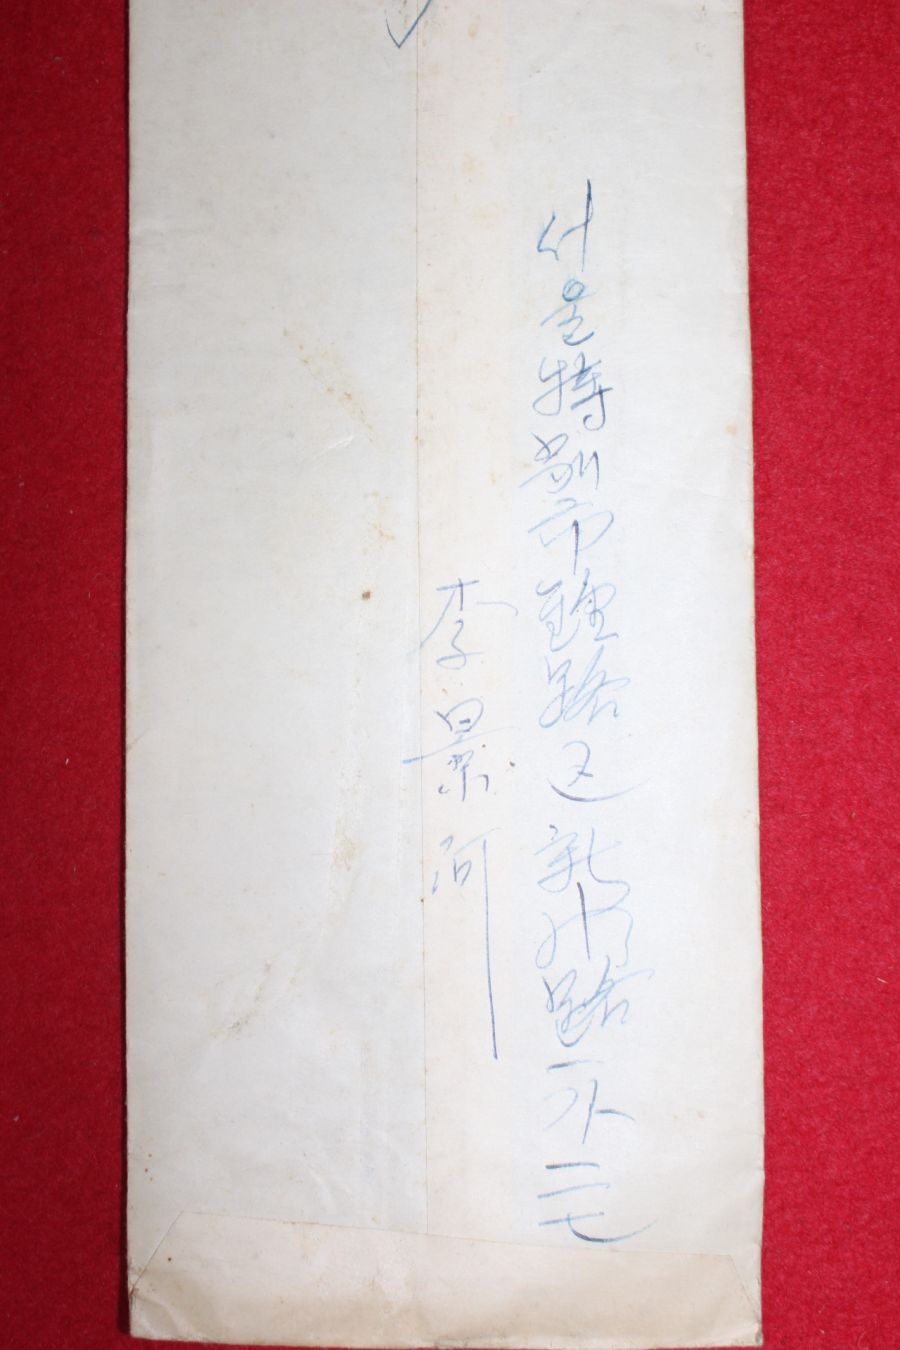 서울特別市鍾路区新門路一가二七
李景河